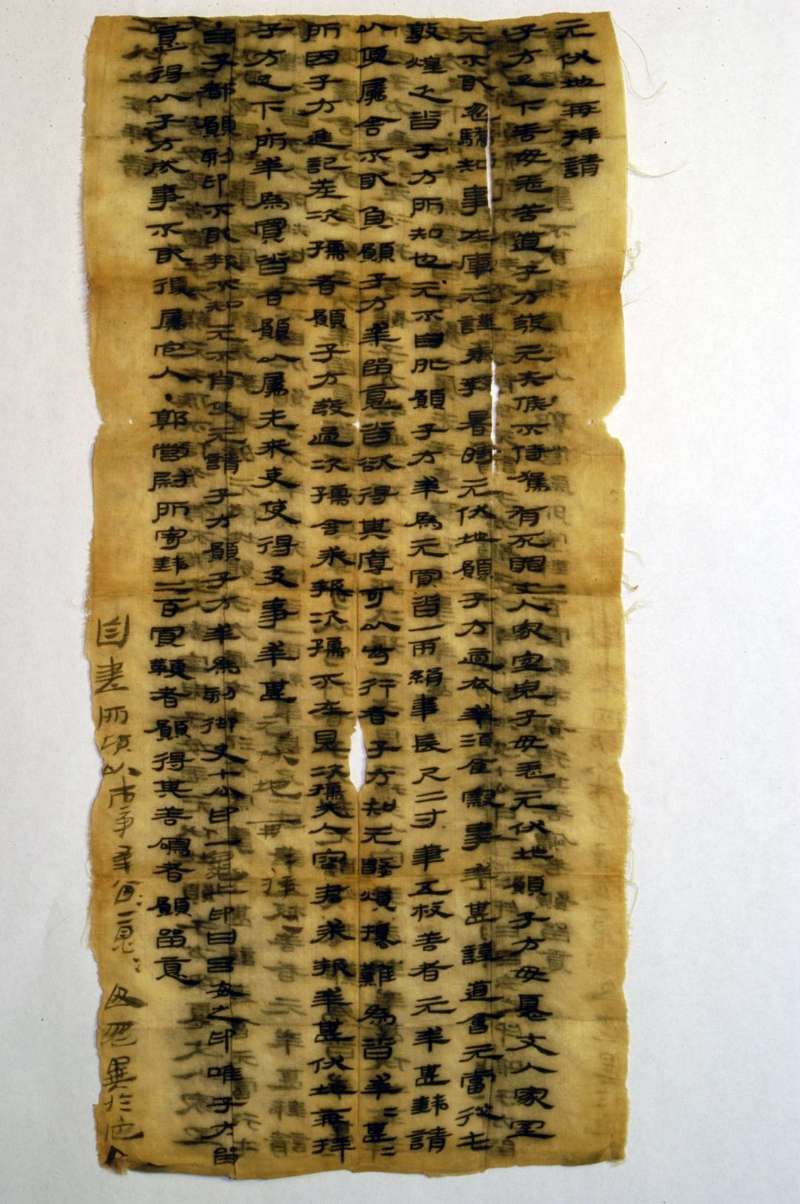 元伏地再拜請
子方足下善毋恙苦道子方發元失候不侍駕有死罪丈人家室兒子毋恙元伏地願子方毋憂丈人家室
元不敢忽驕知事在庫元謹奉教暑時元伏地願子方適衣幸酒食察事幸甚謹道會元當從屯
敦煌乏沓子方所知也元不自外願子方幸爲元買沓一兩絹韋長尺二寸筆五枚善者元幸甚錢請
以便屬舍不敢負願子方幸留意沓欲得其厚可以步行者子方知元數煩擾難爲沓幸=甚=
所因子方進記差次孺者願子方發過次孺舍求報次孺不在見次孺夫人容君求報幸甚伏地再拜
子方足下 所幸爲買沓者願以屬先來吏使得及事幸甚元伏地再拜再拜
吕子都願刻印不敢報不知元不肖使元請子方願子方幸爲刻御史七分印一龜上印曰吕安之印唯子方留
意得以子方成事不敢復屬它人●郭營尉所寄錢二百買鞭者願得其善鳴者願留意
自書所願以市事幸留=意=毋忽異於它人